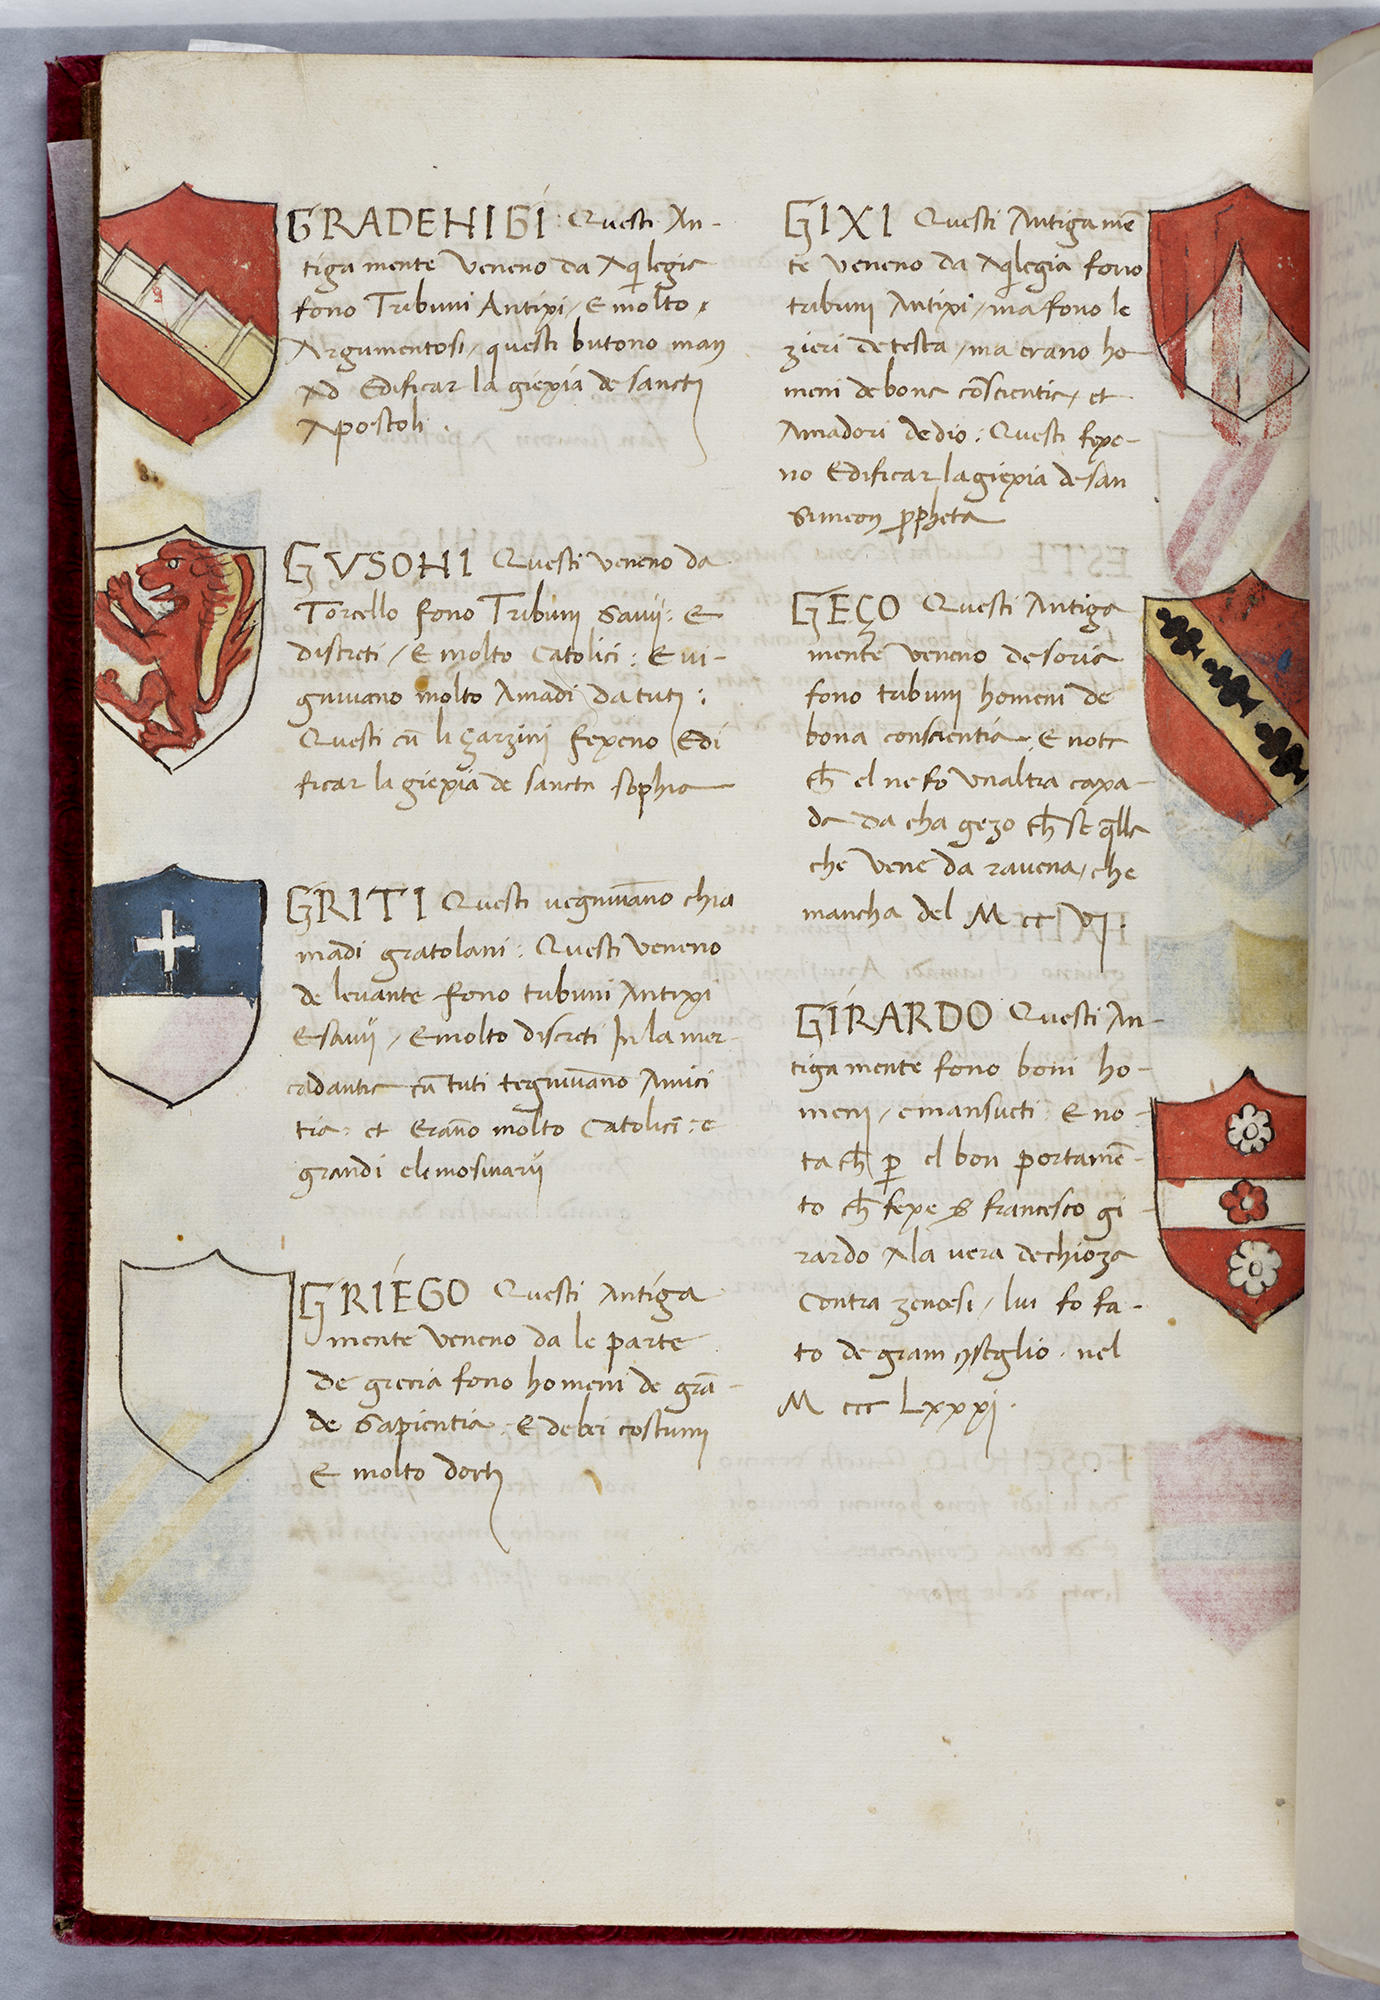 GRADENIGI : Questi An-
tigamente veneno da Aq̃legia
fono Tribuni Antixi / E molto
Argumentosi / questi butono man
Ad Edificar la giexia de sancti
Apostoli .
GUSONI Questi veneno da
Torcello fono Tribuni savij : E
discreti / E molto catolici : E vi-
gnivano molto Amadi da tuti :
Questi cũ li Garzini fexeno Edi
ficar la giexia de sancta sophia
GRITI Questi vegnivãno chia
madi gratolani : Questi veneno
de levante fono tribuni Antixi
E savij / E molto discreti In la mer-
cadantia cũ tuti tegnivãno Amici
tia : et Erãno molto catolici : e
grandi elemosinarij
GRIEGO Questi Antiga
mente veneno da le parte
de grecia fono homeni de grã-
de sapientia . E de bei costumi
E molto dorti
GIXI Questi Antigamẽ
te veneno da Aq̃legia fono
tribuni Antixi / ma fono le
zieri de testa / ma erano ho-
meni de bona cõscientia / et
Amadori de dio : Questi fexe-
no Edificar la giexia de san
Simeon ꝓpheta
GEÇO Questi Antiga
mente veneno de soria
fono tribuni homeni de
bona conscientia . E nota
cħ el ne fo unaltra caxa-
da da cha gezo cħ st̃ q̃lla
che vene da ravena / che
mancha del M cc VJ .
GIRARDO Questi An-
tigamente fono boni ho-
meni / e mansueti : E no-
ta cħ ꝑ el bon portamẽ-
to cħ fexe s̃ francesco gi
rardo A la vera de chioza
contra zenoesi / lui fo fa-
to de gram ꝯseglio . nel
M ccc Lxxxj .